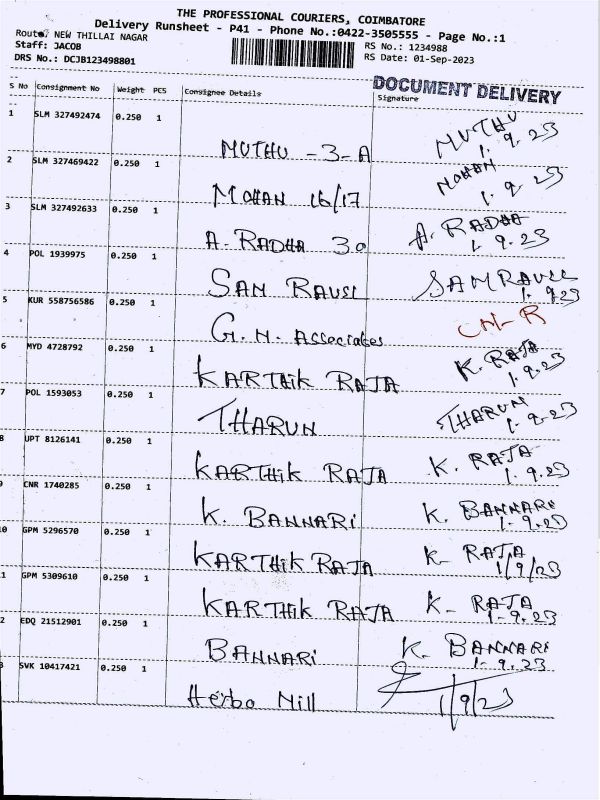 THE PROFESSIONAL COURIERS, COIMBATORE
Delivery Runsheet - P41 - Phone No.:0422-3505555 - Page No.:1
Route: NEW THILLAI NAGAR
RS No.: 1234988
Staff: JACOB
RS Date: 01-Sep-2023
DRS No.: DCJB123498801
DOCUMENT DELIVERY
S No Consignment No Weight PCS Consignee Details Signature
1 SLM 327492474 0.250 1
MUTHU - 3-A MUTHU
1. 9. 23
2 SLM 327469422 0.250 1
MOHAN 16/17 MOHAN
1. 9. 23
3 SLM 327492633 0.250 1
A. RADHA 30 A. RADHA
1. 9. 23
4 POL 1939975 0.250 1
SAM RAVSL
1. 9.23
5 KUR 558756586 0.250 1
G. N. Associates
6 MYD 4728792 0.250 1
KARTHiK RAJA K. RAJA
1. 9.23
7 POL 1593053 0.250 1
THARUN THARUN
1. 9. 23
8 UPT 8126141 0.250 1
KARTHiK RAJA K. RAJA
1. 9. 23
CNR 1740285 0.250 1
K. BANNARi K. BANNARi
1- 9. 23
0 GPM 5296570 0.250 1
KARTHiK RAJA K- RAJA
1/9/23
1 GPM 5309610 0.250 1
KARTHiK RAJA K- RAJA
1- 9. 23
2 EDQ 21512901 0.250 1
BANNARi K. BANNARi
1- 9. 23
3 SVK 10417421 0.250 1
Herbo Mill 1/9/23